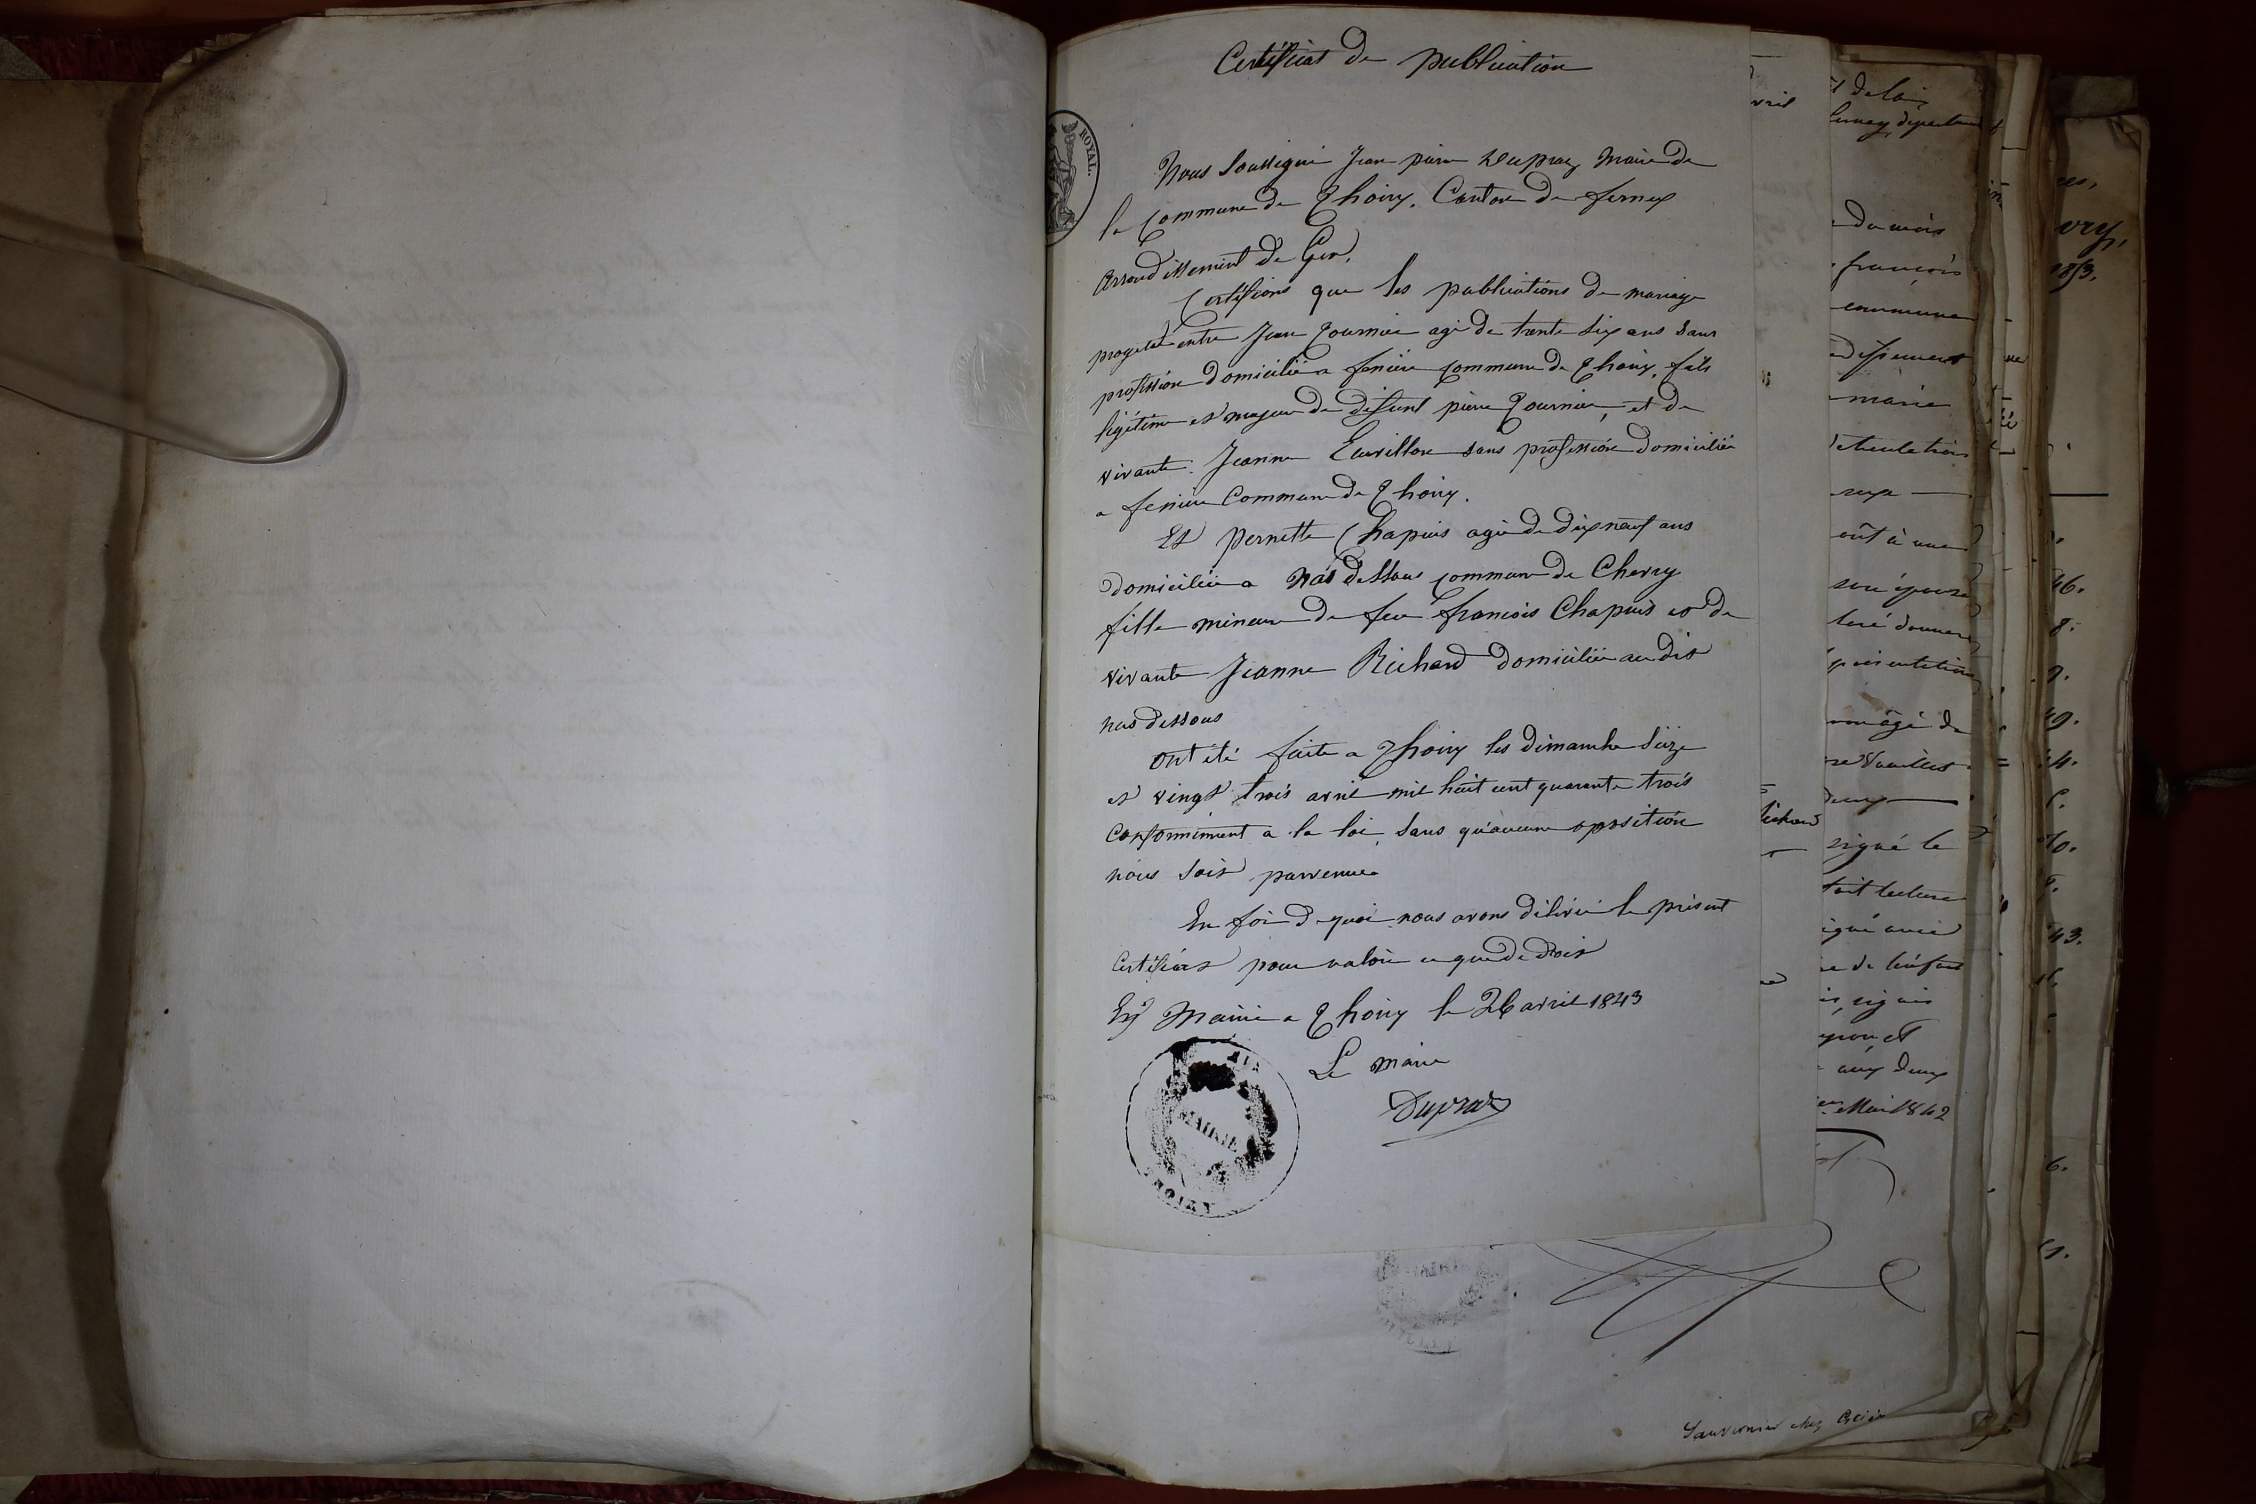 Certificat de publication
ROYAL.
Nous soussigné Jean pierre Dupraz Maire de
la Commune de Thoiry. Canton de fernex
Arrondissement de Gex.
Certifions que les publications de mariage
progeté entre Jean Tournier agé de trente six ans sans
profession domicilié a feniere commune de Thoiry, fils
légitime et majeur de defunt pierre Tournier, et de
vivante Jeanne sans profession domiciliée
a feniere Commune de Thoiry.
Et Pernette Chapuis agée de dix neuf ans
domiciliée a Nas dessous commune de Chevry
fille mineure de feu françois Chapuis et de
vivante Jeanne Richard domiciliée au dit
nas dessous
ont été faite a Thoiry les dimanche Seize
et vingt trois avril mil huit cent quarante trois
Conformément a la loi, sans qu'aucune oposition
nous soit parvenue
En foi de quoi nous avons délivré le présent
Certificat pour valoir ce que de droit
En Mairie a Thoiry le 26 avril 1843
Le maire
Dupraz
MAIRIE
vril
et de loi,
département
du mois
françois
commune
marie
son épouse
donner
agé de
signé le
fait lecture
de l'enfant
aux deux
Mai 1842
Richard
vry,
46.
8.
9.
49.
43.